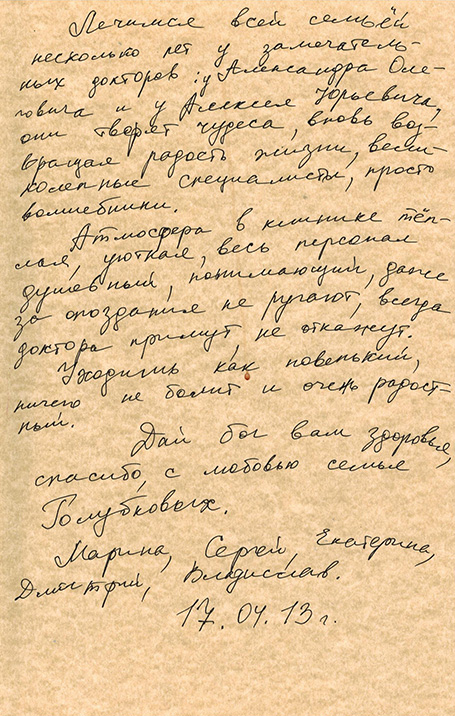 Лечимся всей семьёй
несколько лет у замечатель-
ных докторов: у Александра Оле-
говича и у Алексея Юрьевича,
они творят чудеса, вновь воз-
вращая радость жизни, вели-
колепные специалисты, просто
волшебники.
Атмосфера в клинике тёп-
лая, уютная, весь персонал
душевный, понимающий, даже
за опоздания не ругают, всегда
доктора примут, не откажут.
Уходишь как новенький,
ничего не болит и очень радост-
ный.
Дай бог вам здоровья,
спасибо, с любовью семья
Голубковых.
Марина, Сергей, Екатерина,
Дмитрий, Владислав.
17.04.13 г.